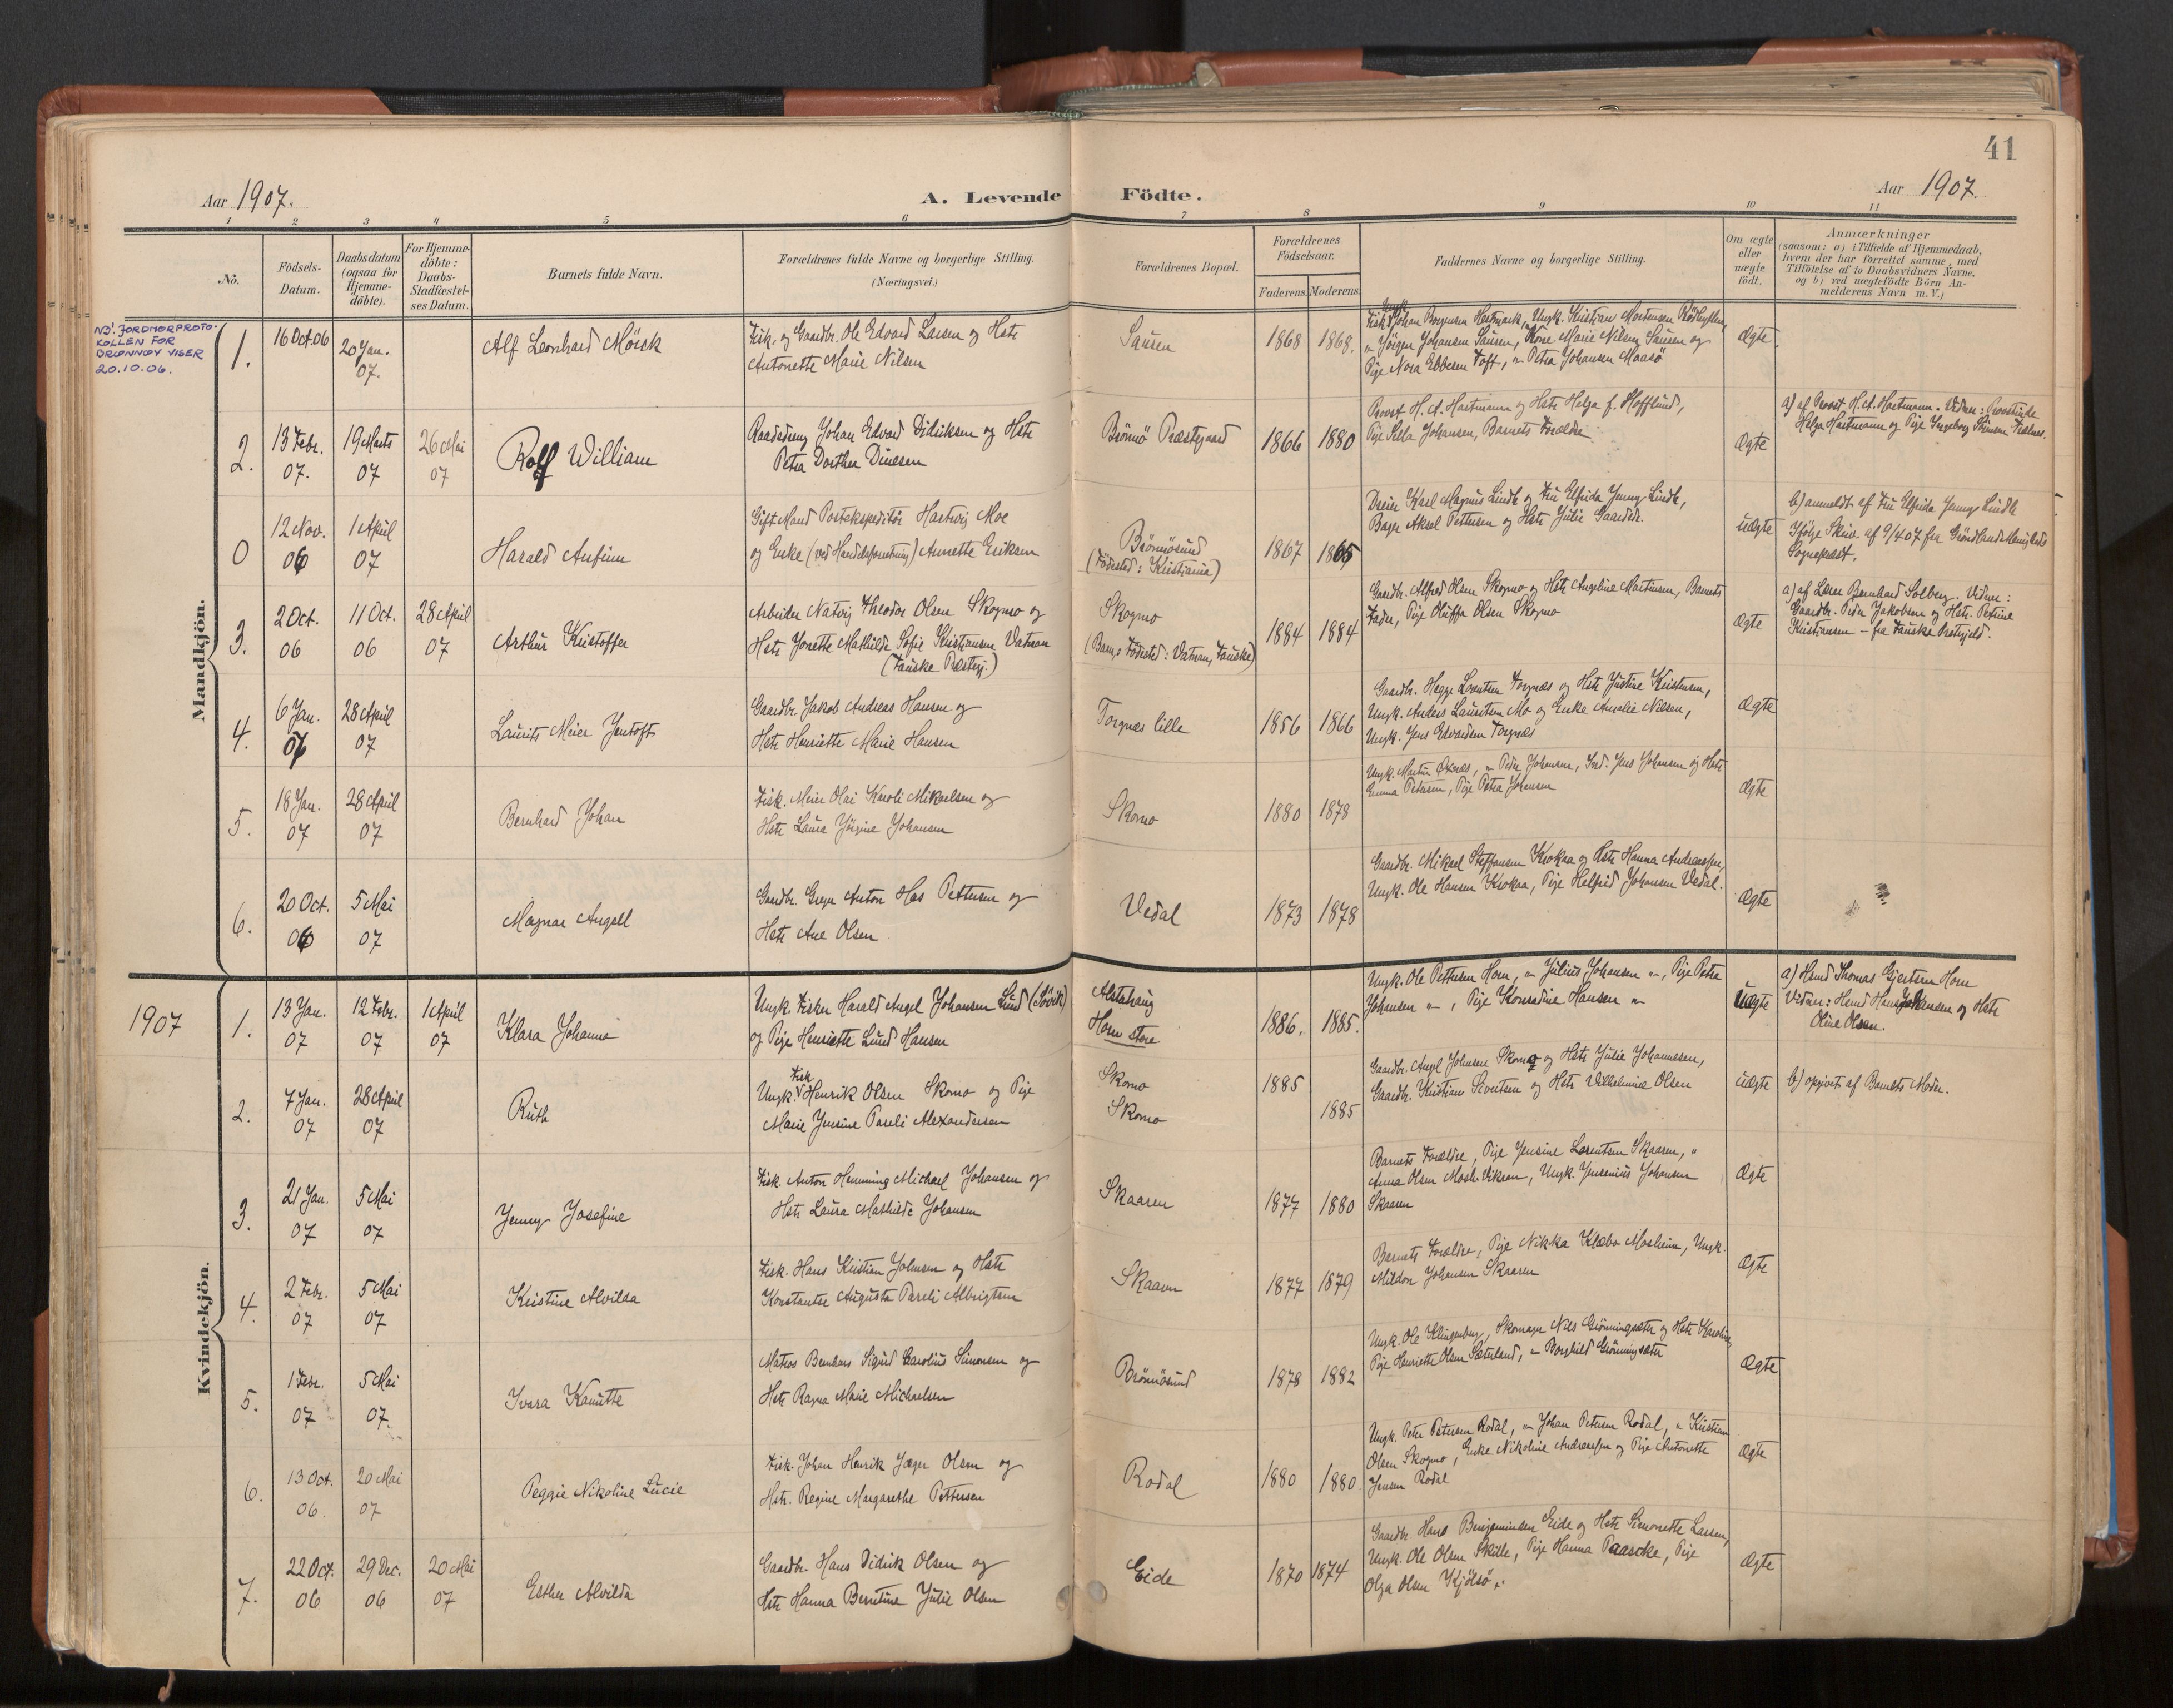 41
Aar 1907.
A. Levende Födte.
Aar 1907.
1 2 3 4 5 6 7 8 9 10 11
No.
Födsels-
Datum.
Daabsdatum
(ogsaa for
Hjemme-
döbte).
For Hjemme-
döbte:
Daabs-
Stadfæstel-
ses Datum.
Barnets fulde Navn.
Forældrenes fulde Navne og borgerlige Stilling.
(Næringsvei.)
Forældrenes Bopæl.
Forældrenes
Födselsaar.
Faderens.
Moderens.
Faddernes Navne og borgerlige Stilling.
Om ægte
eller
uægte
födt.
Anmærkninger
(saasom: a) i Tilfælde af Hjemmedaab,
hvem der har forrettet samme, med
Tilföielse af to Daabsvidners Navne.
og b) ved uægtefödte Börn An-
melderens Navn m. V.)
Mandkjön.
NB! JORDMORPROTO-
KOLLEN FOR
BRØNNØY VISER
20.10.06.
1.
16 Oct. 06
20 Jan.
07.
Alf Leonhard Mörck
Fisk. og Gaardbr. Ole Edvard Larsen og Hstr
Antonette Marie Nilsen
Sausen
1868
1868.
Johan Borgersen Hestmark, Ungk. Kristian Mortensen
" Jörgen Johansen Sausen, Kone Marie Nilsen Sausen og
Pige Nora Ebbesen Toft, " Petra Johansen Maasö
Ægte.
2.
13 Febr.
07.
19 Marts
07
26 Mai
07
Rolf William
Raadsdreng Johan Edvard Didriksen og Hstr
Petra Dorthea Dinesen
Brönnö Præstegaard
1866
1880
Provst H. A. Hartmann og Hstr Helga f. Hofflund,
Pige Johansen, Barnets Forældre
Ægte
a) af Provst H. A. Hartmann. Vidner: Provstinde
Helga Hartmann og Pige Ingeborg
0
12 Nov.
06
1 April
07
Harald Anfinn
Gift Mand Postekspeditör Hartvig Moe
og Enke (ved Handelsforretning) Annette Eriksen
Brönnösund
(Födested: Kristiania)
1867
1865
Dreier Karl Magnus Lindh og Fru Elfrida Jenny Lindh,
Bager Aksel Pettersen og Hstr Julie
uægte
b) anmeldt af Fru Elfrida Jenny Lindh
Ifölge Skriv. af 9/4 07 fra Grönlands Menigheds
Sognepræst.
3.
2 Oct.
06
11 Oct.
06
28 April
07
Arthur Kristoffer
Arbeider Natvig Theodor Olsen Skogmo og
Hstr Jonette Mathilde Sofie Kristiansen Vatnan
(Fauske Præstegj.)
Skogmo
(Barnes Födested: Vatnan, Fauske)
1884
1884
Gaardbr. Alfred Olsen Skogmo og Hstr Angeline Martinsen, Barnets
Fader, Pige Oluffa Olsen Skogmo
Ægte
a) af Lærer Bernhard Solberg. Vidner:
Gaardbr. Peder Jakobsen og Hstr. Petrine
Kristiansen – fra Fauske Prestegjeld.
4.
6 Jan.
07
28 April
07
Laurits Meier Jentoft
Gaardbr. Jakob Andreas Hansen og
Hstr Henriette Marie Hansen
Torgnes lille
1856
1866
Gaardbr. Hegge Lorentsen Torgnæs og Hstr Justine Kristensen,
Ungk. Anders Lauritsen Mo og Enke Amalie Nilsen,
Ungk. Jens Edvardsen Torgnæs
Ægte
5.
18 Jan.
07
28 April
07
Bernhard Johan
Fisk. Meier Olai Karoli Mikaelsen og
Hstr Laura Jörgine Johansen
Skomo
1880
1878
Ungk. Martin, " Peder Johansen, Ind. Jens Johansen og Hstr
Emma Petersen, Pige Petra Johansen
Ægte
6.
20 Oct.
06
5 Mai
07
Magnar Angell
Gaardbr. Greger Anton Hos Pettersen og
Hstr Ane Olsen
Vedal
1873
1878
Gaardbr. Mikael Steffensen Krokaa og Hstr Hanna Andreassen,
Ungk. Ole Hansen Krokaa, Pige Helfrid Johansen Vedal.
Ægte
1907
Kvindekjön.
1.
13 Jan.
07
12 Febr.
07
1 April
07
Klara Johanna
Ungk. Fisker Harald Angel Johansen Lund (Sövik)
og Pige Henriette Lund Hansen
Alstahaug
Horn store
1886.
1885.
Ungk. Ole Pettersen Horn, " Julius Johansen ", Pige Petra
Johansen ", Pige Konradine Hansen "
Uægte
a) Hmd Thomas Gjertsen Horn
Vidner: Hmd Hans Johansen og Hstr
Oline Olsen.
2.
7 Jan.
07
28 April
07
Ruth
Ungk. Fisk. Henrik Olsen Skomo og Pige
Marie Jensine Pareli Alexandersen
Skomo
Skomo
1885
1885
Gaardbr. Angel Johnsen Skomo og Hstr Julie Johannesen,
Gaardbr. Kristian Sivertsen og Hstr Vilhelmine Olsen
uægte
b) opgivet af Barnets Moder.
3.
21 Jan.
07
5 Mai
07
Jenny Josefine
Fisk. Anton Henning Michael Johansen og
Hstr Laura Mathilde Johansen
Skaaren
1877
1880
Barnets Forældre, Pige Jensine Lorentsen Skaaren, "
Anna Olsen Mosh. Vikran, Ungk. Jensenius Johansen
Skaaren
Ægte
4.
2 Febr.
07
5 Mai
07
Kristine Alvilda
Fisk. Hans Kristian Johnsen og Hstr
Konstantse Augusta Pareli Albrigtsen
Skaaren
1877
1879
Barnets Forældre, Pige Nikka Klæbo Mosheim, Ungk.
Mildor Johansen Skaaren
Ægte
5.
1 Febr.
07
5 Mai
07.
Ivara Kanutte
Matros Bernhard Sigurd Carolius Simonsen og
Hstr Ragna Marie Michaelsen
Brönnösund
1878
1882
Ungk. Ole Klingenberg, Skomager Nils Grönningsæter og Hstr Karoline,
Pige Henriette Olsen Sæterland, " Borghild Grönningsæter
Ægte
6.
13 Oct.
06.
20 Mai
07
Peggie Nikoline Lucie
Fisk. Johan Henrik Jæger Olsen og
Hstr. Regine Margarethe Pettersen
Rodal
1880
1880.
Ungk. Peter Petersen Rodal, " Johan Petersen Rodal, " Kristian
Olsen Skogmo, Enke Nikoline Andreassen og Pige Antonette
Jensen Rodal
Ægte
7.
22 Oct.
06
29 Dec.
06
20 Mai
07
Esther Alvilda
Gaardbr. Hans Didrik Olsen og
Hstr Hanna Berntine Julie Olsen
Eide
1870
1874
Gaardbr. Hans Benjaminsen Eide og Hstr Simonette Larsen,
Ungk. Ole Olsen Skille, Pige Hanna Paascke, Pige
Olga Olsen Kjölsö.
Ægte